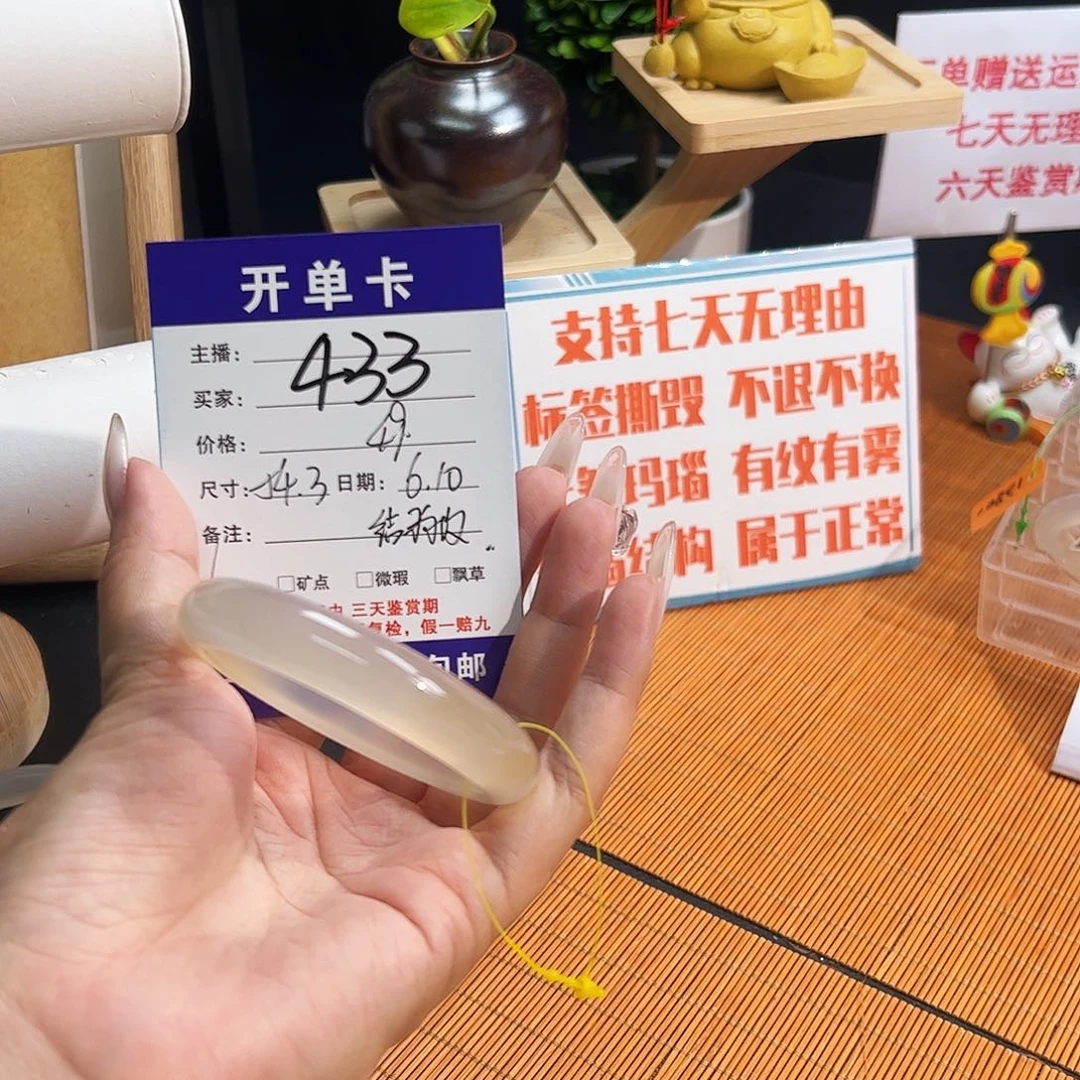 单赠送运
七天无理
六天鉴赏
开单卡
主播：
433
买家：
价格：
49.
尺寸：54.3 日期：6.10
备注：
结构纹
矿点 微瑕 飘草
由 三天鉴赏期
复检，假一赔九
包邮
支持七天无理由
标签撕毁 不退不换
玛瑙 有纹有雾
结构 属于正常